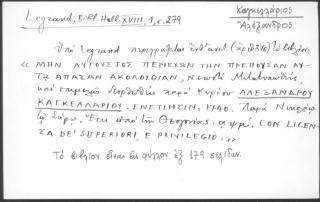 Legrand, Bibl. Hell. XVIII, 1, σ. 279
Καγκελλάριος
Ἀλέξανδρος
Ὑπὸ Legrand περιγράφεται ἐνθ' ἀνωτ. (ἀρθ. 276) τὸ βιβλίον:
« ΜΗΝ ΑΥΓΟΥΣΤΟΣ ΠΕΡΙΕΧΩΝ ΤΗΝ ΠΡΕΠΟΥΣΑΝ ΑΥ-
ΤΩ ΑΠΑΣΑΝ ΑΚΟΛΟΥΘΙΑΝ, Νεωστὶ
καὶ ἐπιμελῶς διορθωθεὶς παρὰ Κυρίου ΑΛΕΞΑΝΔΡΟΥ
ΚΑΓΚΕΛΛΑΡΙΟΥ. ΕΝΕΤΙΗΣΙΝ, 1740. Παρὰ Νικολάῳ
τῷ Σάρῳ. Ἔτει ἀπὸ τῆς Θεογονίας. αψμ'. CON LICEN-
ZA DE' SUPERIORI, E PRIVILEGIO. »
Τὸ βιβλίον εἶναι εἰς φύλλον ἐξ 179 σελίδων.